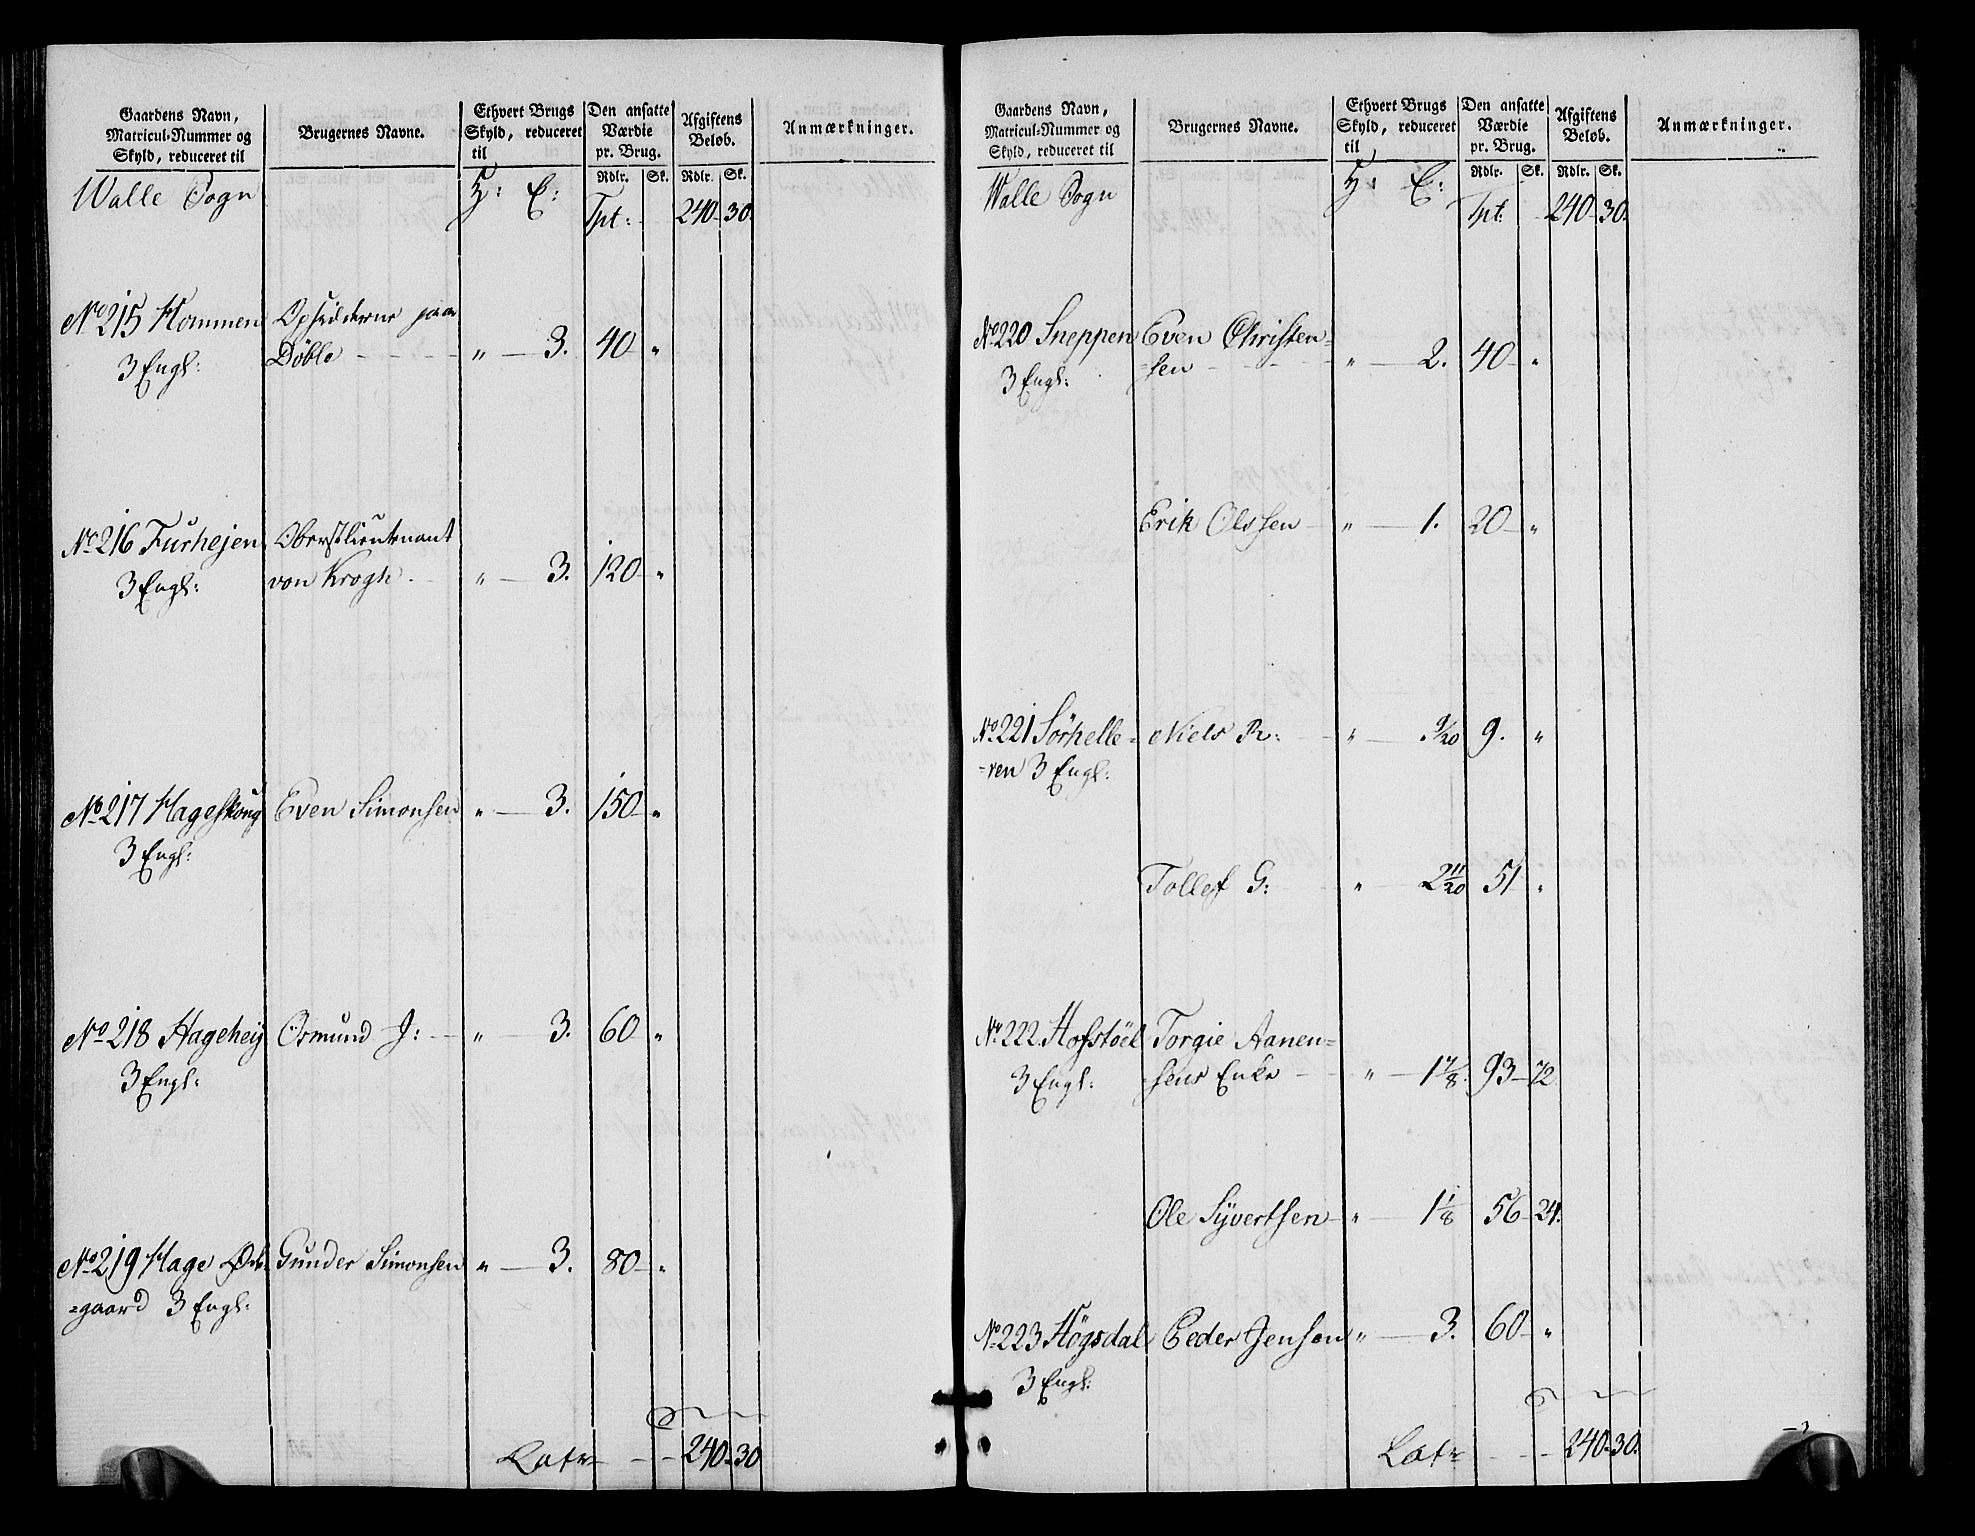 Gaardens Navn,
Matricul-Nummer og
Skyld, reduceret til
Brugernes Navne.
Ethvert Brugs
Skyld, reduceret
til
Den ansatte
Værdie
pr. Brug.
Afgiftens
Beløb.
Anmærkninger.
Rdlr. Sk. Rdlr. Sk.
Walle Sogn H: E: Tpt: 240 30.
No 215 Hommen Opsidderne paa
3 Engl: Döble " 3. 40 "
No 216 Furhejen Oberstlieutenant
3 Engl: von Krogh " 3. 120 "
No 217 Hageskoug Even Simonsen " 3. 150 "
3 Engl:
No 218 Hagehey Osmund J: " 3. 60 "
3 Engl:
No 219 Hage Gunder Simonsen " 3. 80 "
=gaard 3 Engl:
Latr 240 30
Gaardens Navn,
Matricul-Nummer og
Skyld, reduceret til
Brugernes Navne.
Ethvert Brugs
Skyld, reduceret
til
Den ansatte
Værdie
pr. Brug.
Afgiftens
Beløb.
Anmærkninger.
Rdlr. Sk. Rdlr. Sk.
Walle Sogn H: E: Tpt: 240 30.
No 220 Sneppen Even Christen=
3 Engl: =sen " 2. 40 "
Erik Olssen " 1. 20 "
No 221 Sörhelle= Niels R: " 9/20 9. "
=ren 3 Engl:
Tollef G: " 2 11/20 51 "
No 222 Hofstöel Torgie Aanen=
3 Engl: =sens Enke " 1 7/8. 93 72
Ole Syvertsen " 1 1/8 56 24.
No 223 Högsdal Peder Jensen " 3. 60 "
3 Engl:
Latr 240 30.